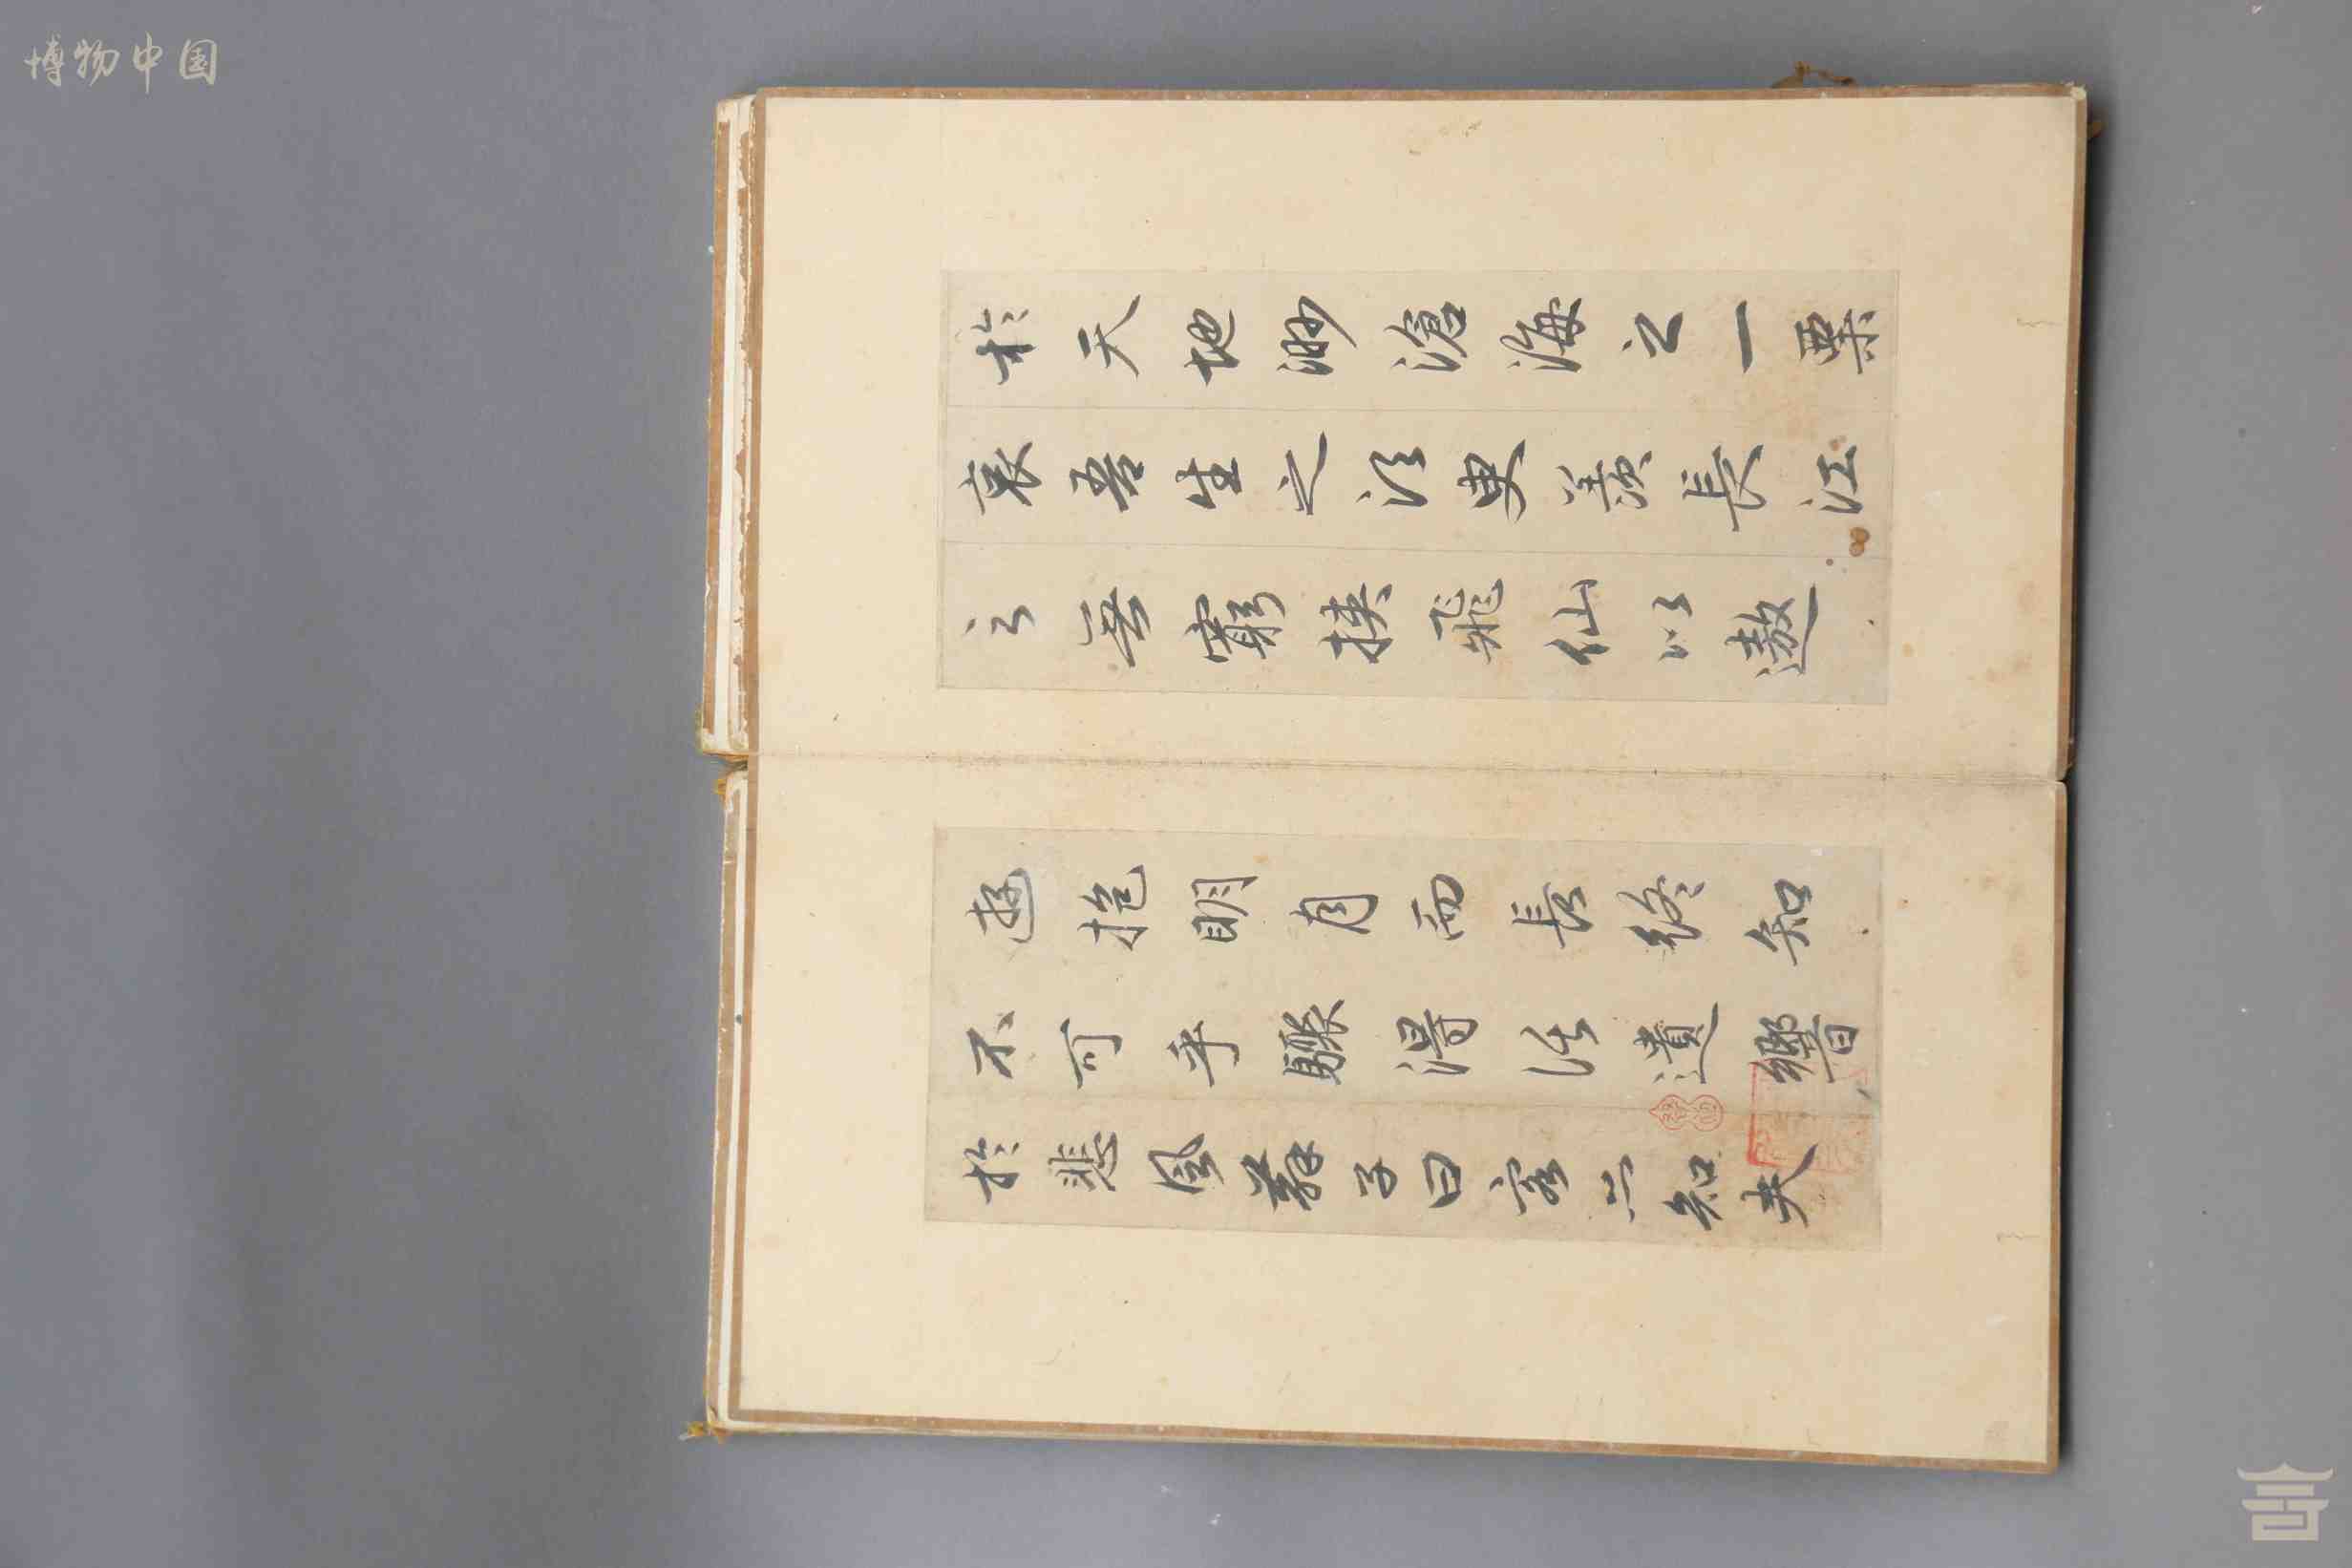 博物中国
於天地渺滄海之一粟
哀吾生之須臾羨長江
之無窮挟飛仙以遨
遊抱明月而長終知
不可乎驟得託遺響
於悲風蘇子曰客亦知夫